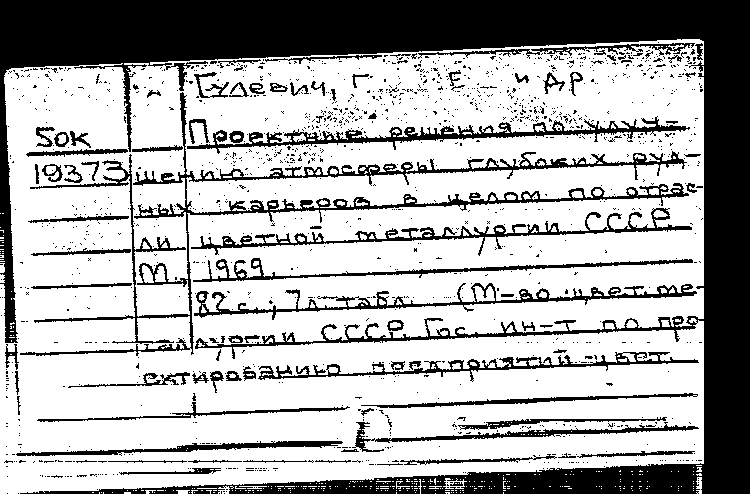 Гулевич, Г. Е и др.
50к Проектные решения по улуч-
19373 шению атмосферы глубоких руд-
ных карьеров в целом по отрас-
ли цветной металлургии СССР.
М., 1969.
82 с.; 7 л. табл. (М-во цвет. ме-
таллургии СССР. Гос. ин-т по про-
ектированию предприятий цвет.